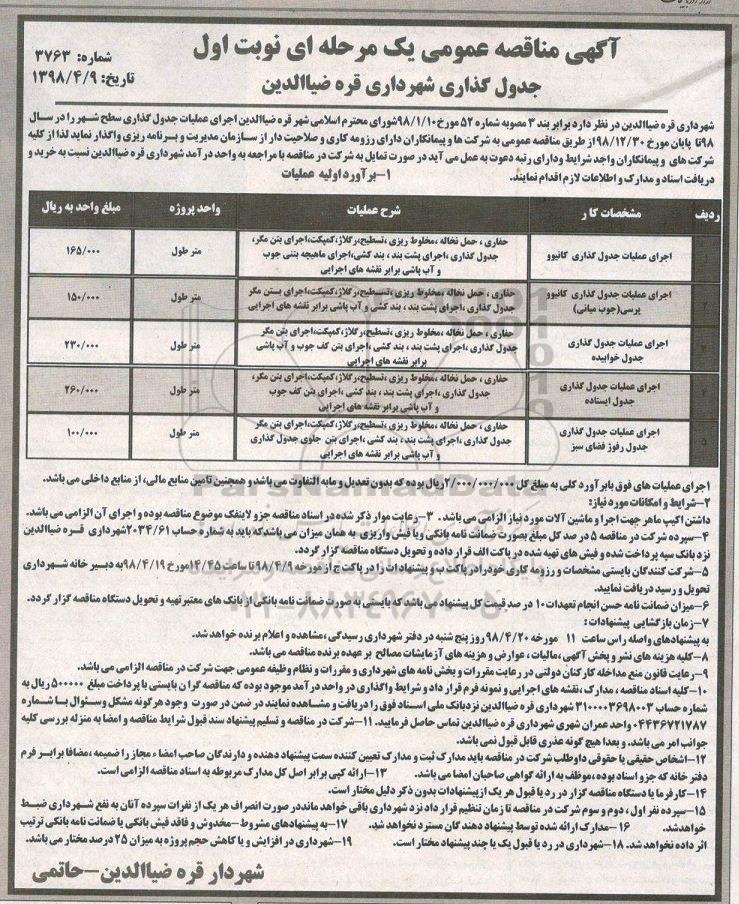 آگهی مناقصه عمومی یک مرحله ای نوبت اول
شماره: ۳۷۶۳
جدول گذاری شهرداری قره ضیاالدین
تاریخ: ۱۳۹۸/۴/۹
شهرداری قره ضیاالدین در نظر دارد برابر بند ۳ مصوبه شماره ۵۲ مورخ ۹۸/۱/۱۰شورای محترم اسلامی شهر قره ضیاالدین اجرای عملیات جدول گذاری سطح شهر را در سال
۹۸تا پایان مورخ ۹۸/۱۲/۳۰از طریق مناقصه عمومی به شرکت ها و پیمانکاران دارای رزومه کاری و صلاحیت دار از سازمان مدیریت و برنامه ریزی واگذار نماید لذا از کلیه
شرکت های و پیمانکاران واجد شرایط ودارای رتبه دعوت به عمل می آید در صورت تمایل به شرکت در مناقصه با مراجعه به واحد درآمد شهرداری قره ضیاالدین نسبت به خرید و
دریافت اسناد و مدارک و اطلاعات لازم اقدام نمایند.
۱-برآورد اولیه عملیات
ردیف مشخصات کار شرح عملیات واحد پروژه مبلغ واحد به ریال
۱ اجرای عملیات جدول گذاری کانیوو حفاری ، حمل نخاله ،مخلوط ریزی ،تسطیح،رگلاژ،کمپکت،اجرای بتن مگر، متر طول ۱۶۵/۰۰۰
جدول گذاری ،اجرای پشت بند ، بند کشی،اجرای ماهیچه بتنی جوب
و آب پاشی برابر نقشه های اجرایی
۲ اجرای عملیات جدول گذاری کانیوو حفاری ، حمل نخاله ،مخلوط ریزی ،تسطیح،رگلاژ،کمپکت،اجرای بتن مگر، متر طول ۱۵۰/۰۰۰
پرسی(جوب میانی) جدول گذاری ،اجرای پشت بند ، بند کشی و آب پاشی برابر نقشه های اجرایی
۳ اجرای عملیات جدول گذاری حفاری ، حمل نخاله ،مخلوط ریزی ،تسطیح،رگلاژ،کمپکت،اجرای بتن مگر متر طول ۲۳۰/۰۰۰
جدول خوابیده جدول گذاری ،اجرای پشت بند ، بند کشی ،اجرای بتن کف جوب و آب پاشی
برابر نقشه های اجرایی
۴ اجرای عملیات جدول گذاری حفاری ، حمل نخاله ،مخلوط ریزی ،تسطیح،رگلاژ،کمپکت،اجرای بتن مگر، متر طول ۲۶۰/۰۰۰
جدول ایستاده جدول گذاری ،اجرای پشت بند ، بند کشی ،اجرای بتن کف جوب
و آب پاشی برابر نقشه های اجرایی
۵ اجرای عملیات جدول گذاری حفاری ، حمل نخاله ،مخلوط ریزی ،تسطیح،رگلاژ،کمپکت،اجرای بتن مگر، متر طول ۱۰۰/۰۰۰
جدول رفوژ فضای سبز جدول گذاری ،اجرای پشت بند ، بند کشی ،اجرای بتن جلوی جدول گذاری
و آب پاشی برابر نقشه های اجرایی
اجرای عملیات های فوق بابرآورد کلی به مبلغ کل ۲/۰۰۰/۰۰۰/۰۰۰ریال بوده که بدون تعدیل و مابه التفاوت می باشد و همچنین تامین منابع مالی، از منابع داخلی می باشد.
۲-شرایط و امکانات مورد نیاز:
داشتن اکیپ ماهر جهت اجرا و ماشین آلات مورد نیاز الزامی می باشد . ۳-رعایت موار ذکر شده در اسناد مناقصه جزو لاینفک موضوع مناقصه بوده و اجرای آن الزامی می باشد.
۴-سپرده شرکت در مناقصه ۵ در صد کل مبلغ بصورت ضمانت نامه بانکی ویا فیش واریزی به همان میزان می باشدکه باید به شماره حساب ۲۰۳۴/۶۱شهرداری قره ضیاالدین
نزد بانک سپه پرداخت شده و فیش های تهیه شده در پاکت الف قرار داده و تحویل دستگاه مناقصه گزار گردد.
۵-شرکت کنندگان بایستی مشخصات و رزومه کاری خودرا در پاکت ب و پیشنهادات را در پاکت ج از مورخه ۹۸/۴/۹تا ساعت ۱۴/۴۵مورخ ۹۸/۴/۱۹به دبیر خانه شهرداری
تحویل و رسید دریافت نمایید.
۶-میزان ضمانت نامه حسن انجام تعهدات۱۰ در صد قیمت کل پیشنهاد می باشد که بایستی به صورت ضمانت نامه بانکی از بانک های معتبر تهیه و تحویل دستگاه مناقصه گزار گردد.
۷-زمان بازگشایی پیشنهادات :
به پیشنهادهای واصله راس ساعت ۱۱ مورخه ۹۸/۴/۲۰روز پنج شنبه در دفتر شهرداری رسیدگی ،مشاهده و اعلام برنده خواهد شد.
۸-کلیه هزینه های نشر و پخش آگهی ،مالیات ، عوارض و هزینه های آزمایشات مصالح بر عهده برنده مناقصه می باشد.
۹-رعایت قانون منع مداخله کارکنان دولتی در رعایت مقررات و بخش نامه های شهرداری و مقررات و نظام وظیفه عمومی جهت شرکت در مناقصه الزامی می باشد.
۱۰-کلیه اسناد مناقصه ، مدارک ،نقشه های اجرایی و نمونه فرم قرار داد و شرایط واگذاری در واحد درآمد موجود بوده که مناقصه گران بایستی با پرداخت مبلغ ۵۰۰۰۰۰ ریال به
شماره حساب ۳۱۰۰۰۰۳۶۹۸۰۰۳ شهرداری قره ضیاالدین نزدبانک ملی اسناد فوق را دریافت و مشاهده نمایند در ضمن در صورت وجود هرگونه مشکل وسئوال با شماره
۰۴۴۳۶۷۲۱۷۸۷ واحد عمران شهری شهرداری قره ضیاالدین تماس حاصل فرمایید. ۱۱-شرکت در مناقصه و تسلیم پیشنهاد سند قبول شرایط مناقصه و امضا به منزله بررسی کلیه
جوانب امر می باشد. و بعدا هیچ گونه عذری قابل قبول نمی باشد.
۱۲-اشخاص حقیقی یا حقوقی داوطلب شرکت در مناقصه باید مدارک ثبت و مدارک تعیین کننده سمت پیشنهاد دهنده و دارندگان صاحب امضاء مجاز را ضمیمه ،مضافا برابر فرم
دفتر خانه که جزو اسناد بوده ،موظف به ارائه گواهی صاحبان امضا می باشد. ۱۳-ارائه کپی برابر اصل کل مدارک مربوطه به اسناد مناقصه الزامی است.
۱۴-کارفرما یا دستگاه مناقصه گزار در رد یا قبول هر یک از پیشنهادات بدون ذکر دلیل مختار است.
۱۵-سپرده نفر اول ، دوم و سوم شرکت در مناقصه تا زمان تنظیم قرار داد نزد شهرداری باقی خواهد ماند.در صورت انصراف هر یک از نفرات سپرده آنان به نفع شهرداری ضبط
خواهدشد. ۱۶-مدارک ارائه شده توسط پیشنهاد دهندگان مسترد نخواهد شد. ۱۷-به پیشنهادهای مشروط-مخدوش و فاقد فیش بانکی یا ضمانت نامه بانکی ترتیب
اثر داده نخواهد شد. ۱۸-شهرداری در رد یا قبول یک یا چند پیشنهاد مختار است. ۱۹-شهرداری در افزایش و یا کاهش حجم پروژه به میزان ۲۵ درصد مختار می باشد.
شهردار قره ضیاالدین-حاتمی
ParsNamadData
۰۲۱-۸۸۳۴۹۶۷۰-۵